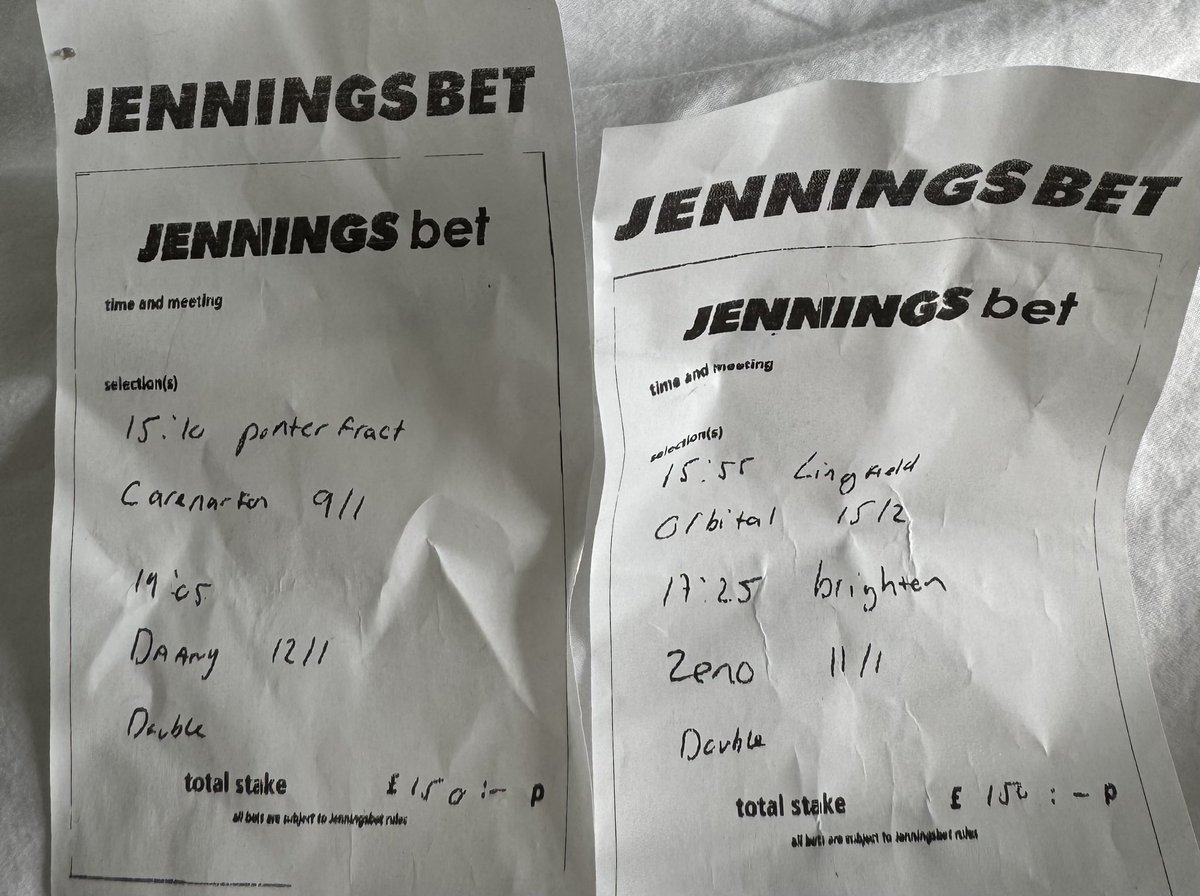 JENNINGSBET
JENNINGS bet
time and meeting
selection(s)
15:10 ponterfract
Carenarfon 9/1
14:05
DAANY 12/1
Double
total stake £ 150 :- p
all bets are subject to Jenningsbet rules
JENNINGSBET
JENNINGS bet
time and meeting
selection(s)
15:55 Lingfield
Orbital 15/2
17:25 brighten
Zeno 11/1
Double
total stake £ 150 : - p
all bets are subject to Jenningsbet rules